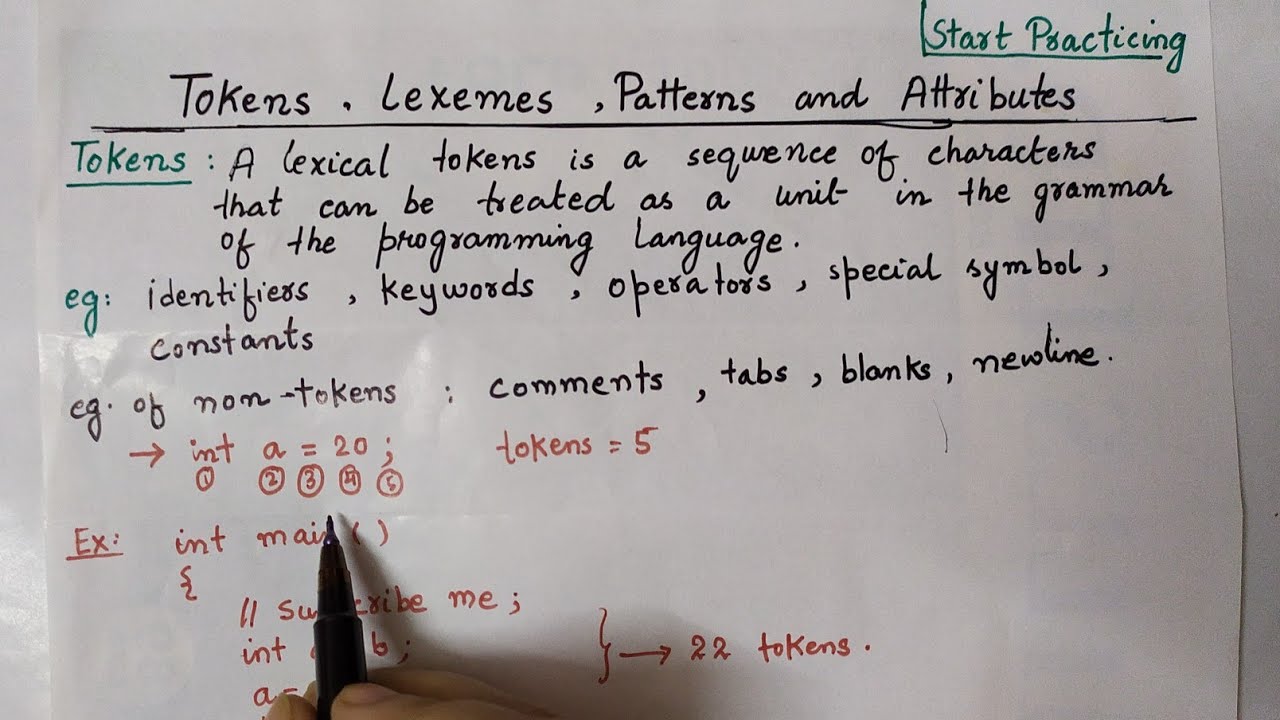 Start Practicing
Tokens, Lexemes, Patterns and Attributes
Tokens : A lexical tokens is a sequence of characters
that can be treated as a unit in the grammar
of the programming language.
eg: identifiers, keywords, operators, special symbol,
constants
eg. of non-tokens : comments, tabs, blanks, newline.
→ int a = 20 ; tokens = 5
① ② ③ ④ ⑤
Ex: int main ( )
{
// me ;
int b ; } → 22 tokens.
a =